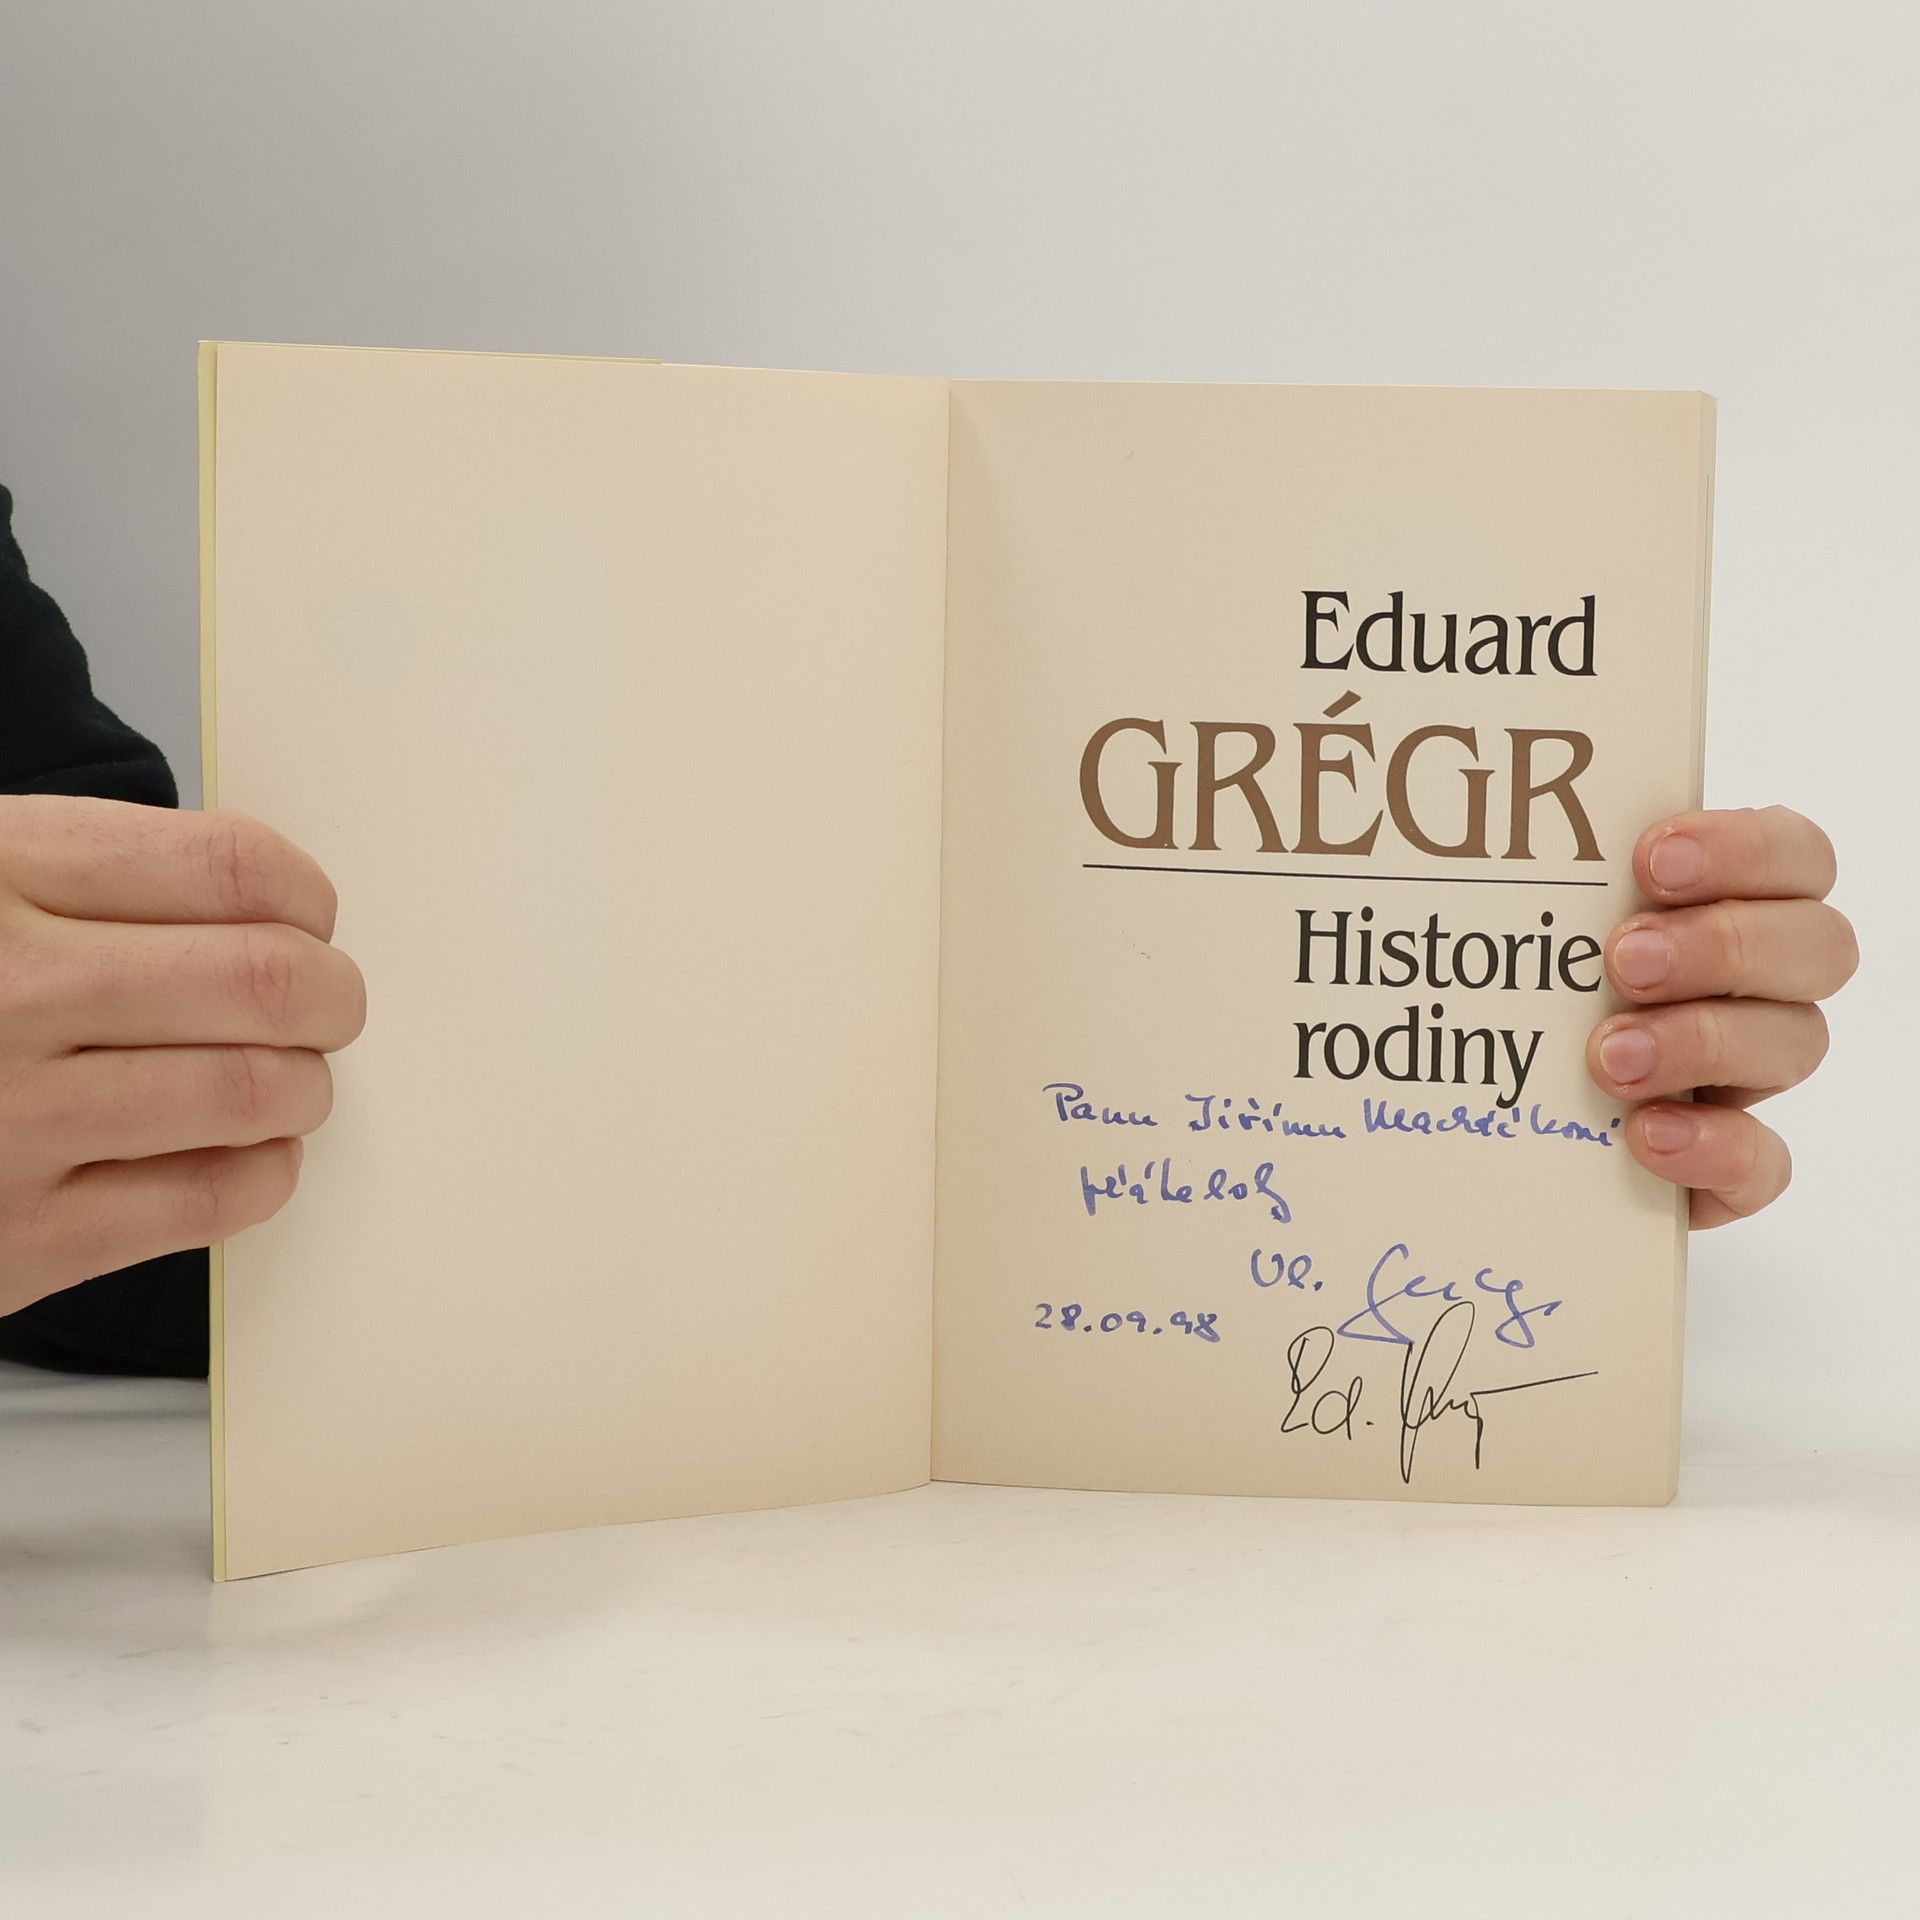 Eduard
GRÉGR
Historie
rodiny
Panu Jiřímu Macháčkovi
přátelsky
Vl.
28.09.98
Ed.